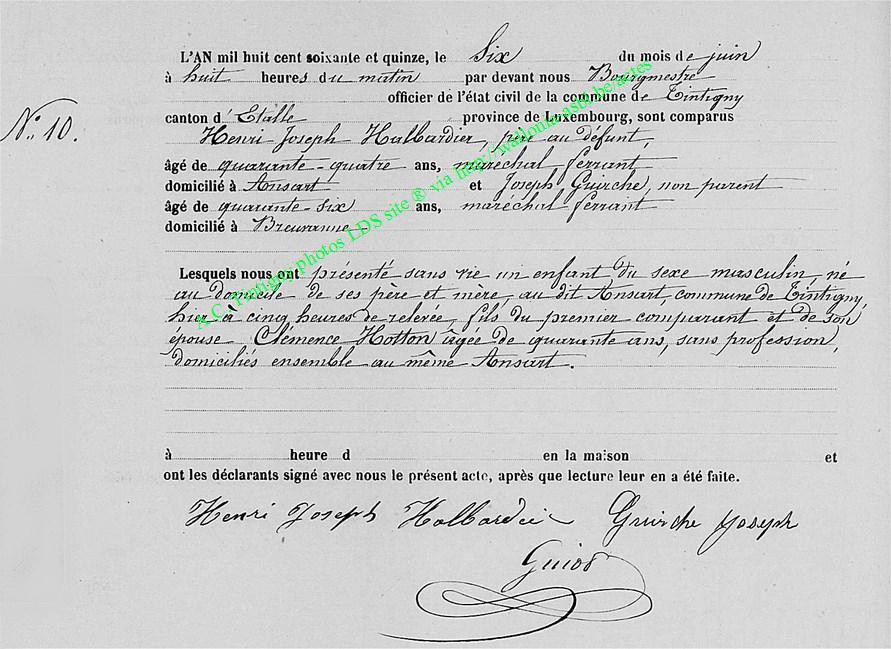 L'AN mil huit cent soixante et quinze, le Six du mois de juin
à huit heures du matin par devant nous Bourgmestre
officier de l'état civil de la commune de Tintigny
N.º 10.
canton d' Etalle province de Luxembourg, sont comparus
Henri Joseph Halbardier, père au défunt,
âgé de quarante-quatre ans, maréchal ferrant
domicilié à Ansart et Joseph Guirche, non parent
âgé de quarante-six ans, maréchal ferrant
domicilié à Breuvanne
Lesquels nous ont présenté sans vie un enfant du sexe masculin, né
au domicile de ses père et mère, au dit Ansart, commune de Tintigny,
hier à cinq heures de relevée, fils du premier comparant et de son
épouse Clémence Hotton âgée de quarante ans, sans profession,
domiciliés ensemble au même Ansart.
à heure d en la maison et
ont les déclarants signé avec nous le présent acte, après que lecture leur en a été faite.
Henri Joseph Halbardier Guirche Joseph
A.C. Tintigny photos LDS site ® via http://wallonia.asbl.be/actes